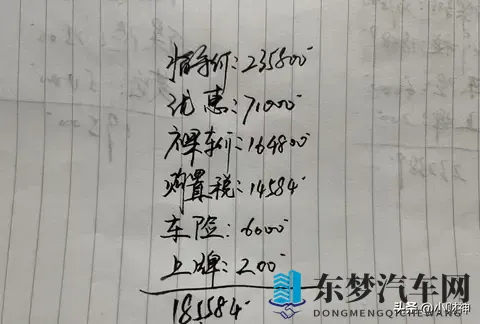 指导价:235800
优惠:71000
裸车价:164800
购置税:14584
车险:6000
上牌:200
185584
东梦汽车网
DONGMENGQICHEWANG